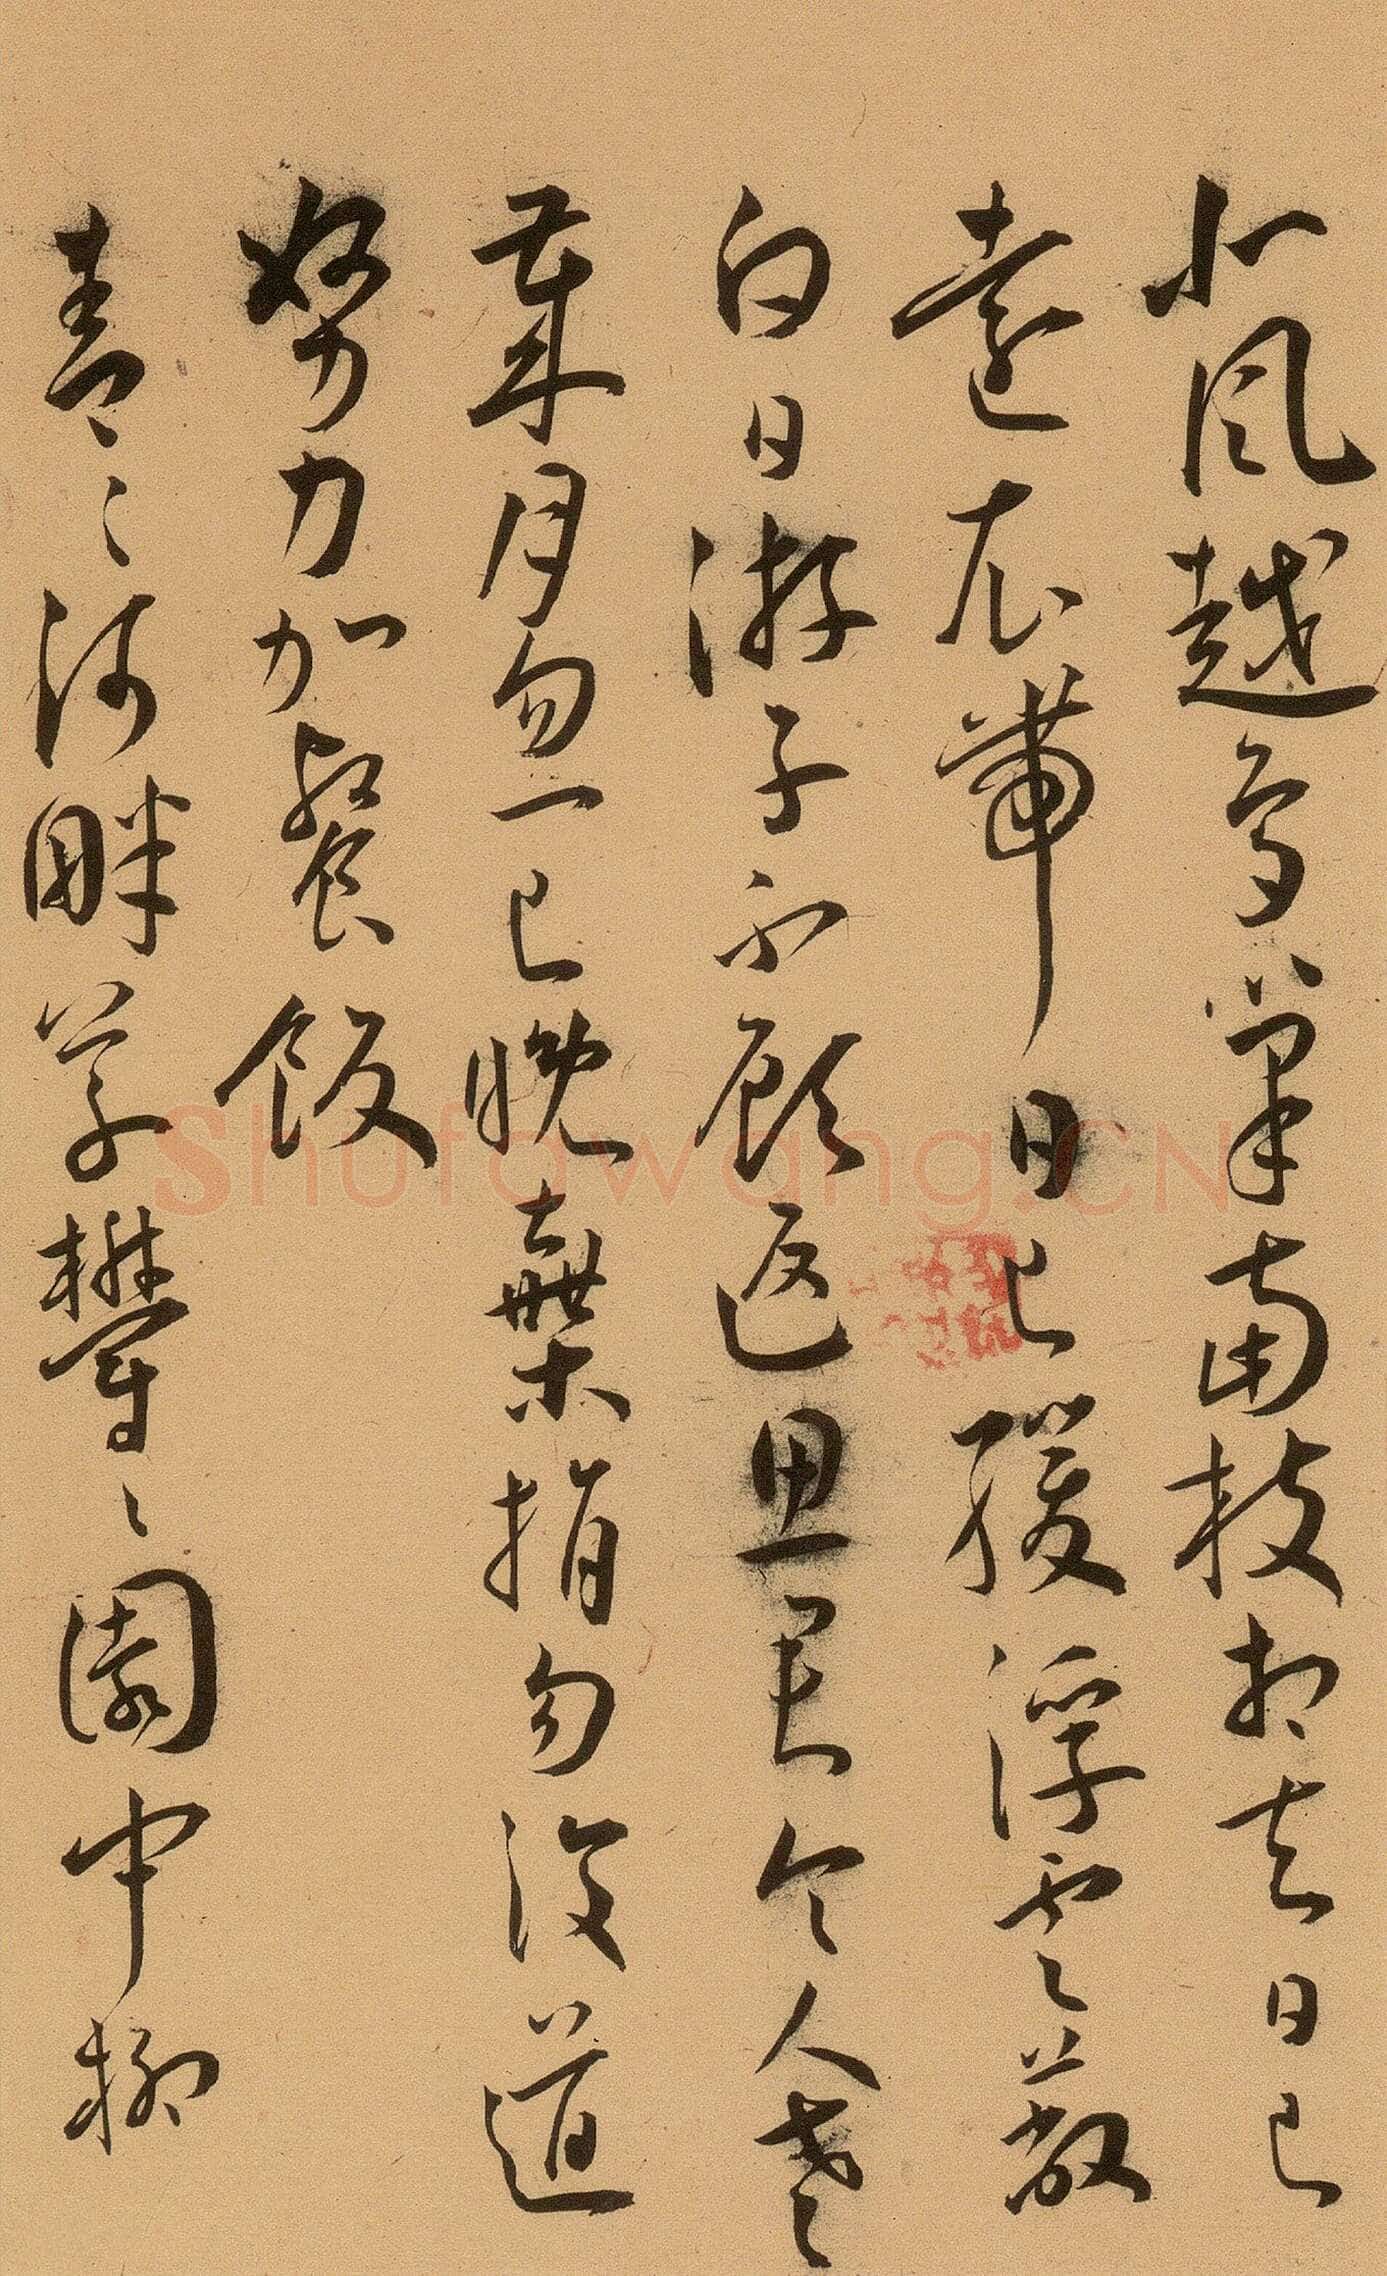 北風越鳥巢南枝相去日已
遠衣帶日已緩浮雲蔽
白日游子不顧返思君令人老
歲月勿一已晚棄捐勿復道
努力加餐飯
青〻河畔草鬱〻園中柳
Shufawang.CN